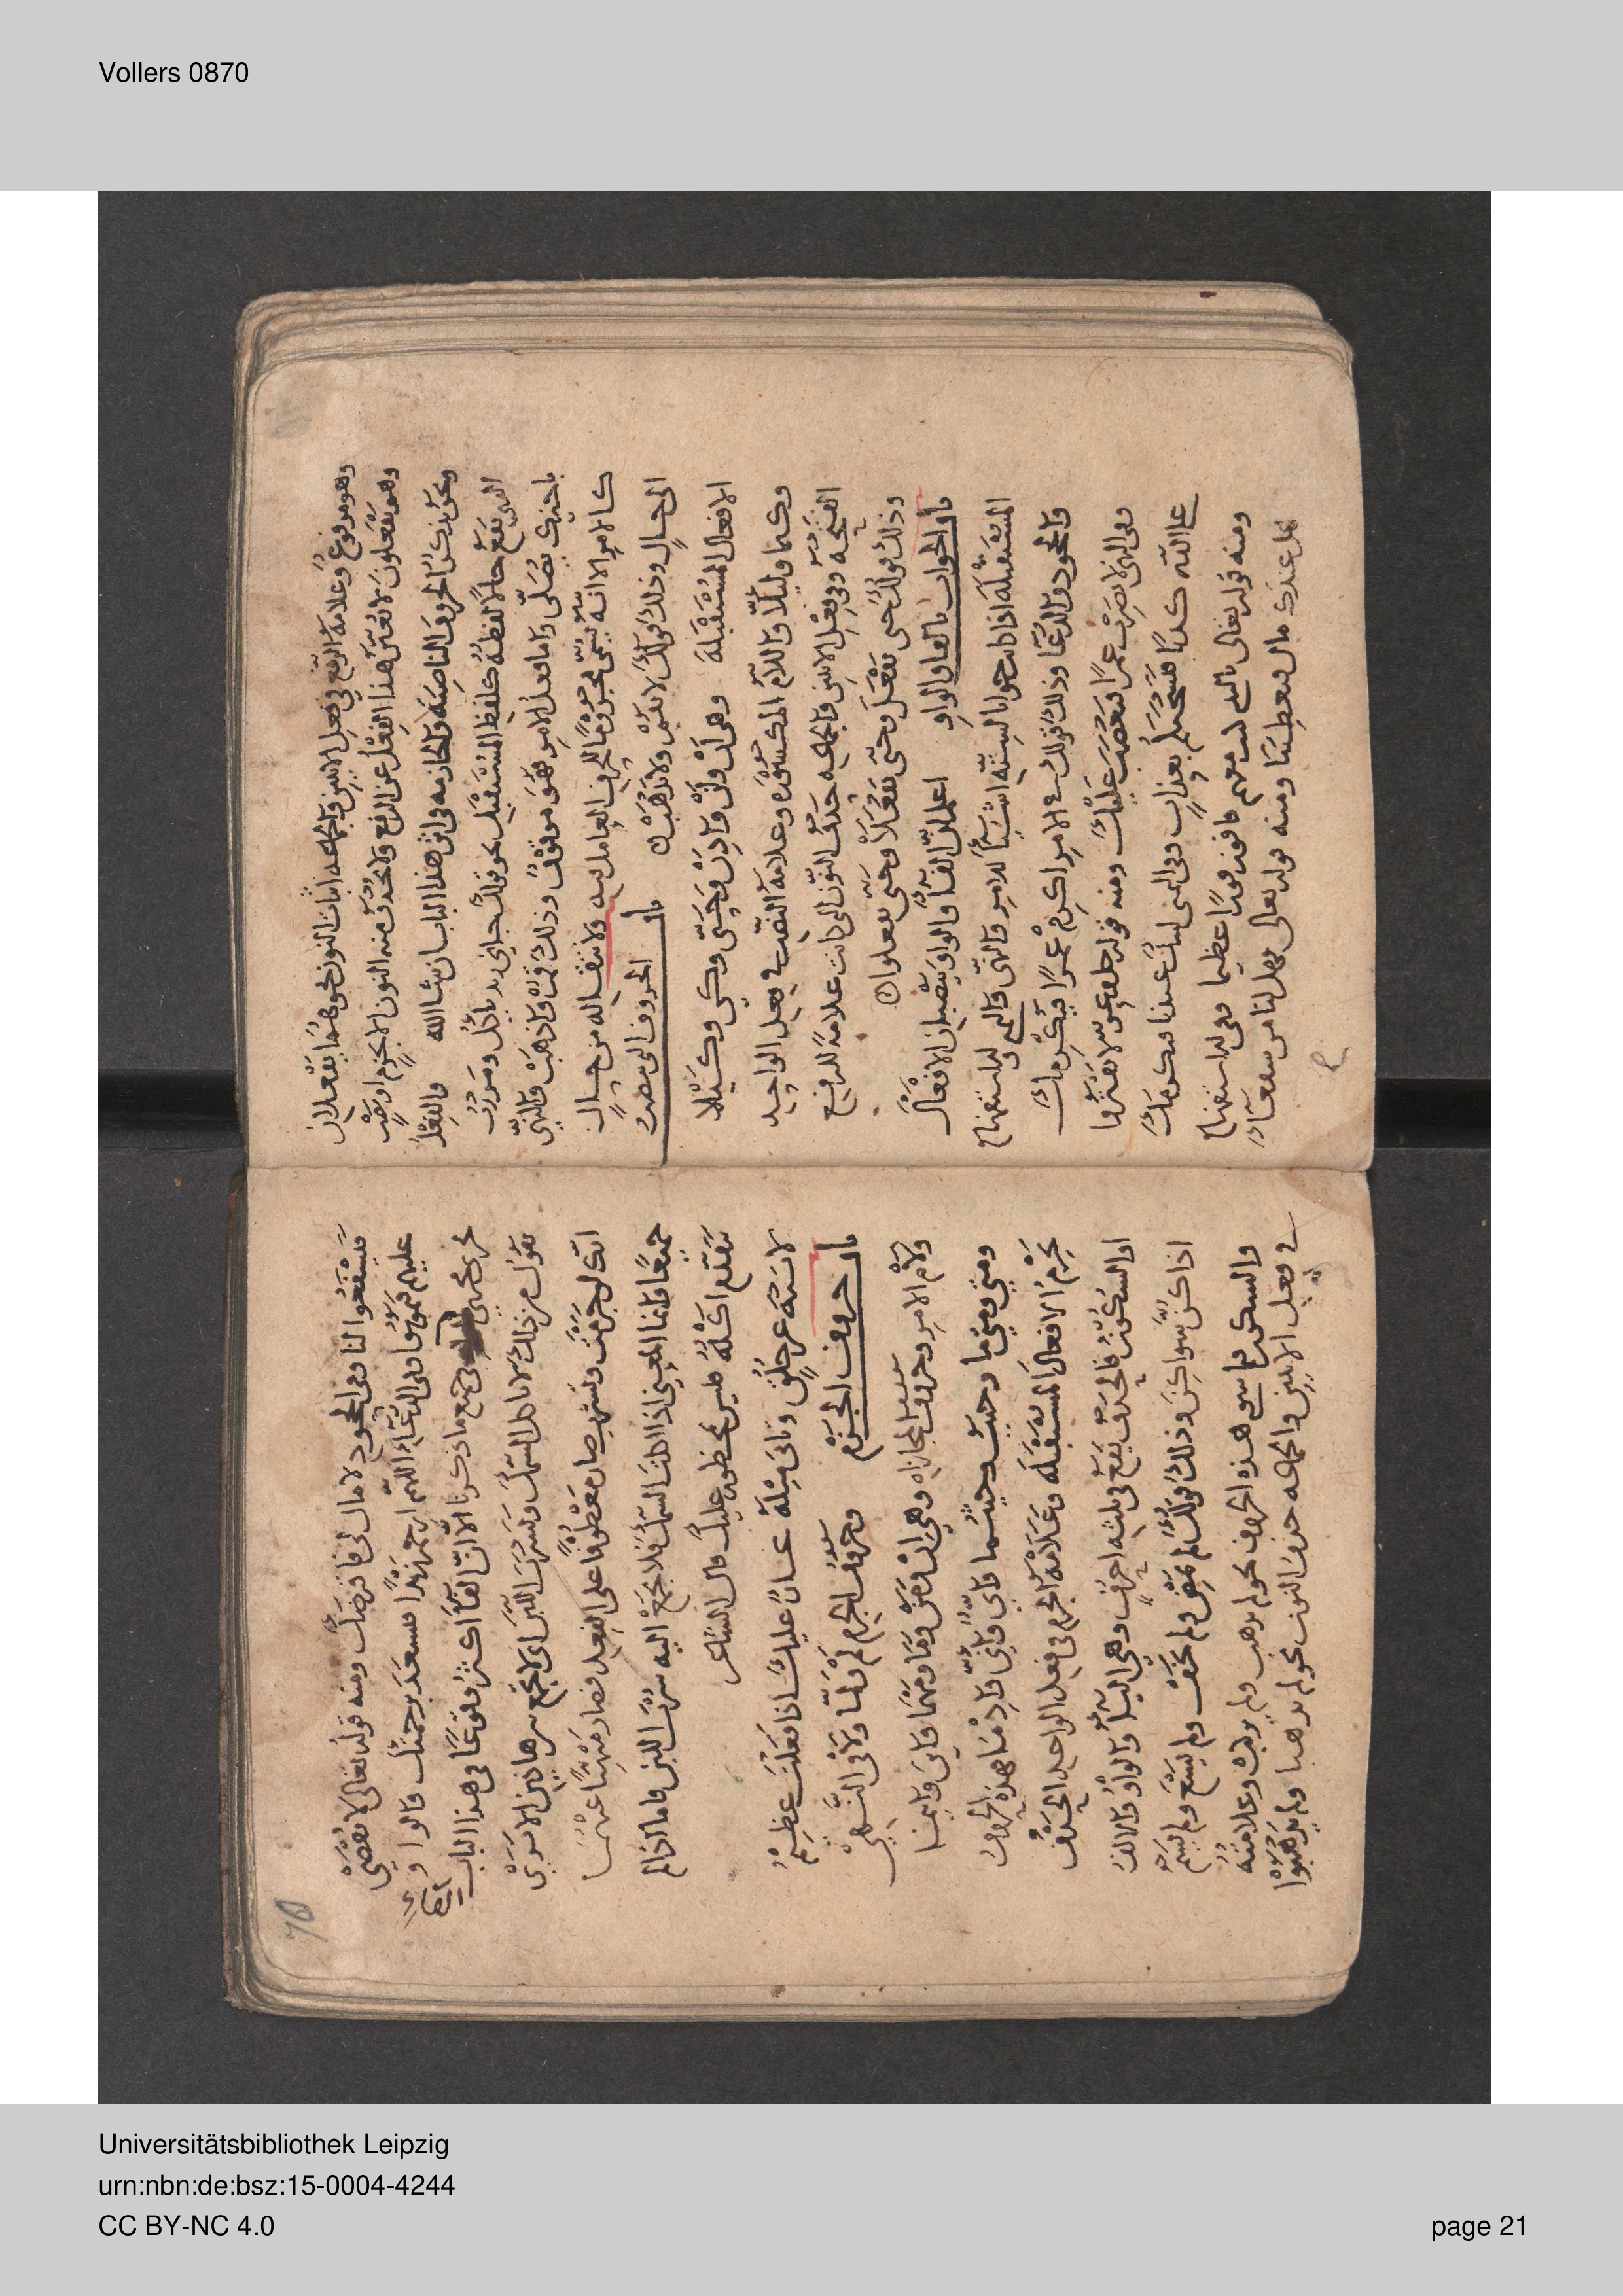 Vollers 0870
وهو مرفوع وعلامة الرفع في فعل الاثنين والجماعه اثبات النون نحو هما يفعلان
وهم يفعلون لا يغير هذا الفعل عن الرفع ولا تحذف منه النون الا بجزم او نصب
ونحن نذكر الحروف الناصبة والجازمه في اثر هذا الباب ان شا الله والفعل
الذي يقع حالا لفظه كلفظ المستقبل نحو قولك جاني زيد ياكل ومررت
باخيك يصلي واما فعل الامر فهو موقوف وذلك قم واذهب والنهي
كالامر الا انه يسمى مجزوما للحرف العامل فيه ولانتقاله من حال
الى حال وذلك قولك لا تقم ولا تذهب باب الحروف التي تنصب
الافعال المستقبلة وهي ان ولن واذن وحتى وكي وكيلا
وكيما وليلا واللام المكسوره وعلامة النصب في فعل الواحد
الفتحه وفي فعل الاثنين والجماعه حذف النون التي كانت علامة للرفع
وذلك قولك حتى تفعل وحتى تفعلا وحتى تفعلوا
باب الجواب بالفا والواو اعلم ان الفا والواو ينصبان الافعال
المستقبله اذا كانت جوابا لستة اشيا للامر والنهي وللاستفهام
والجحود والدعا وذلك قولك في الامر اكرم عمرا فيكرمك
وفي النهي لا تضرب عمرا فيغضب عليك ومنه قوله جل وعز لا تفتروا
على الله كذبا فيسحتكم بعذاب وفي التمني ليتك عندنا فنكرمك
ومنه قوله تعالى يا ليتني كنت معهم فافوز فوزا عظيما وفي الاستفهام
هل عندك مال فتعطينا ومنه قوله تعالى فهل لنا من شفعآء
فيشفعوا لنا وفي الجحود لا مال لي فاقرضك ومنه قوله تعالى لا يقضى
عليهم فيموتوا وفي الدعاء اللهم ارحم زيدا فيسعد برحمتك والواو
ايضا
تجري مجرى في جميع ما ذكرنا الا ان الفا اكثر وقوعا في هذا الباب
تقول من ذلك لا تاكل السمك وتشرب اللبن اي لا تجمع بين هاذين الا ترى
انك لو جزمت وتشرب صار معطوفا على الفعل فصار منهيا عنهما
جميعا وانما المعنى اذا اكلت السمك فلا تجمع اليه شرب اللبن فاما ان لم
اكله فليس محظور عليك قال الشاعر
لا تنه عن خلق وتاتي مثله عار عليك اذا فعلت عظيم
باب حروف الجزم وحروف الجزم لم ولما ولا في النهي
ولام الامر وحروف المجازاه وهي ان ومن وما ومهما واين واينما
ومتى ومتى ما وحيث وحيثما واي وانى واذ ما هذه الحروف
تجزم الافعال المستقبله وعلامة الجزم في فعل الواحد الحذف
او السكون فالحذف يقع في ثلثه احرف وهي اليا والواو والالف
اذا كن سواكن وذلك قولك لم يقض ولم ولم يسع ولم
والسكون ما سوى هذه الحروف نحو لم يذهب ولم يركب وعلامته
في فعل الاثنين والجماعه حذف النون نحو لم يذهبا ولم يذهبوا
Universitätsbibliothek Leipzig
urn:nbn:de:bsz:15-0004-4244
CC BY-NC 4.0
page 21